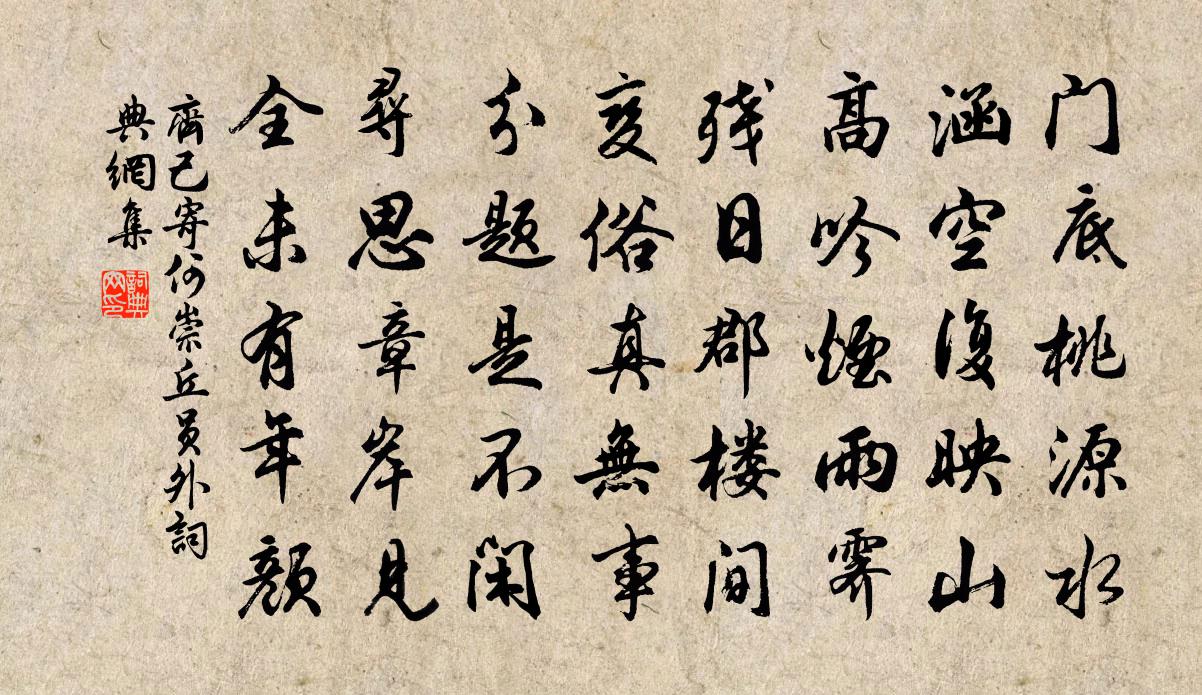 门底桃源水
涵空復映山
高吟煙雨霽
残日郡楼间
变俗真無事
分题是不闲
尋思章岸見
全未有年顔
齊己寄何崇丘员外詞
典網集
詞典网印